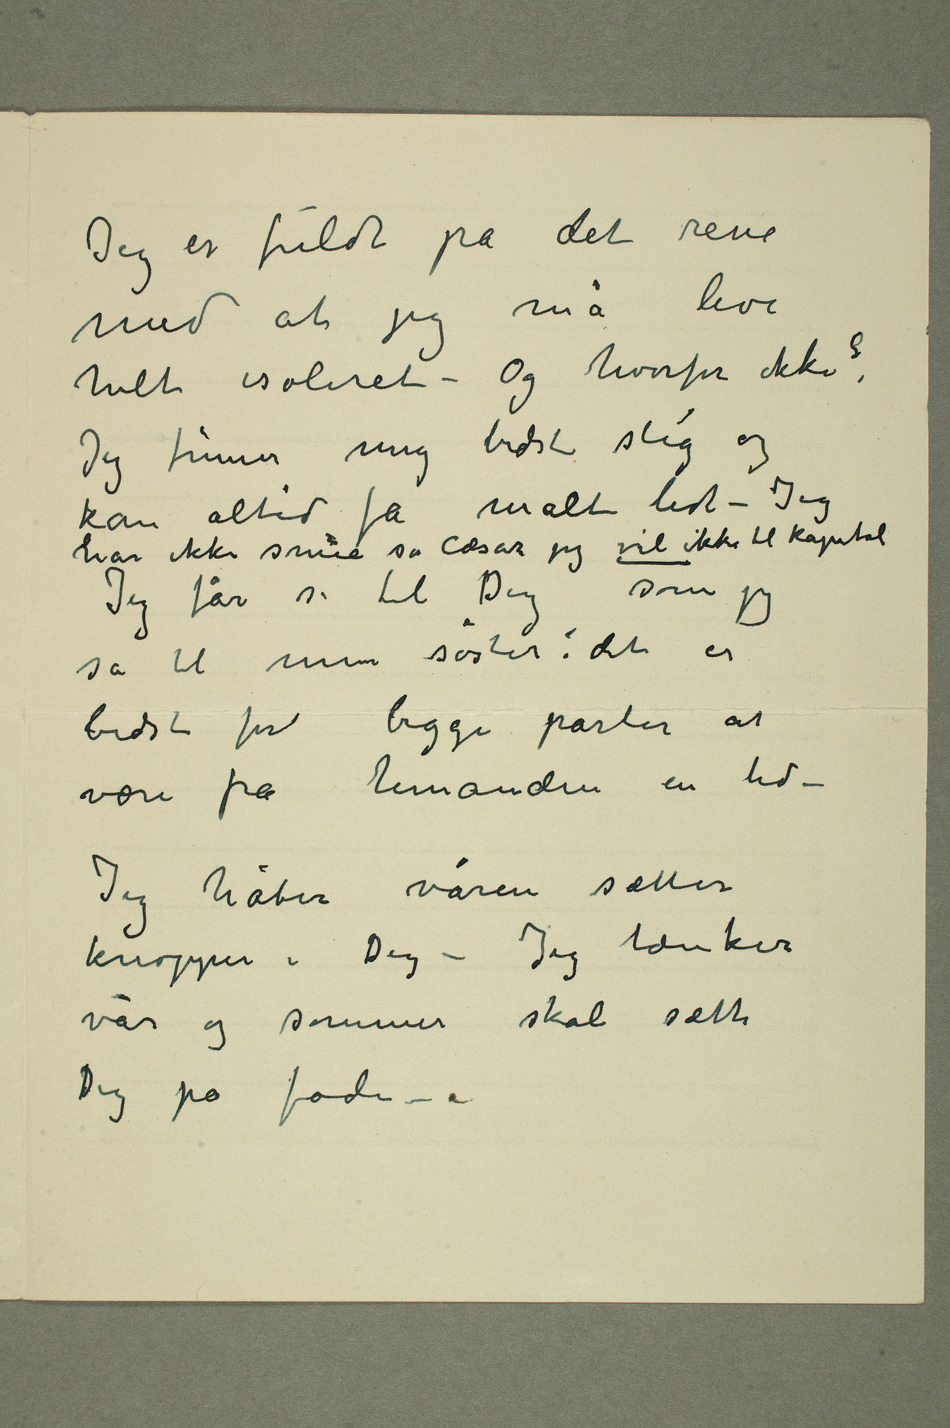 Jeg er fuldt på det rene
med at jeg må leve
helt isoleret – Og hvorfor ikke?
Jeg finner mig bedst slig og
kan altid få malt lidt – Jeg
har ikke sa Cæsar jeg vil ikke til Kapitol
Jeg får si til Dig som jeg
sa til min søster: det er
bedst for begge parter at
være fra hinanden en tid –
Jeg håber våren sætter
knopper i Dig – Jeg tænker
vår og sommer skal sætte
Dig på fode –